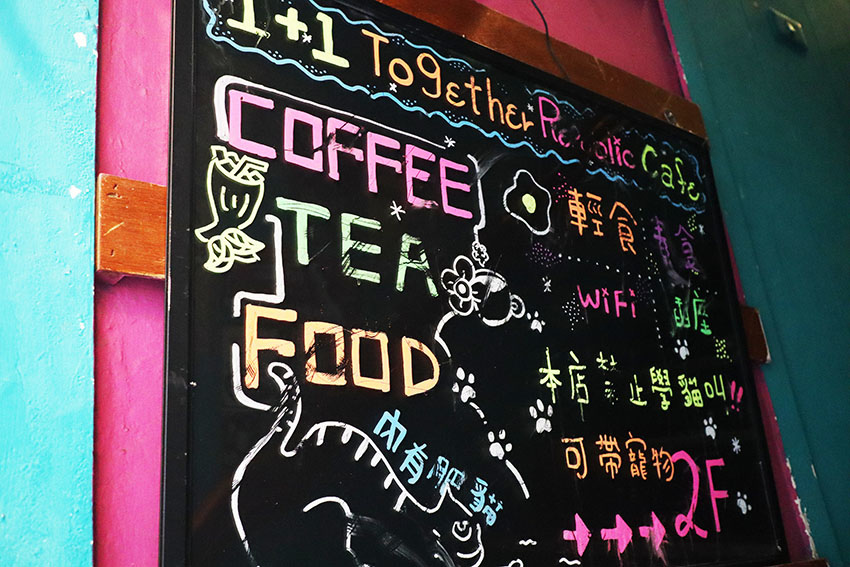 1+1 Together Republic Cafe
COFFEE
TEA
FOOD
輕食 素食
WiFi 插座
本店禁止學貓叫!!
可帶寵物
內有肥貓
2F